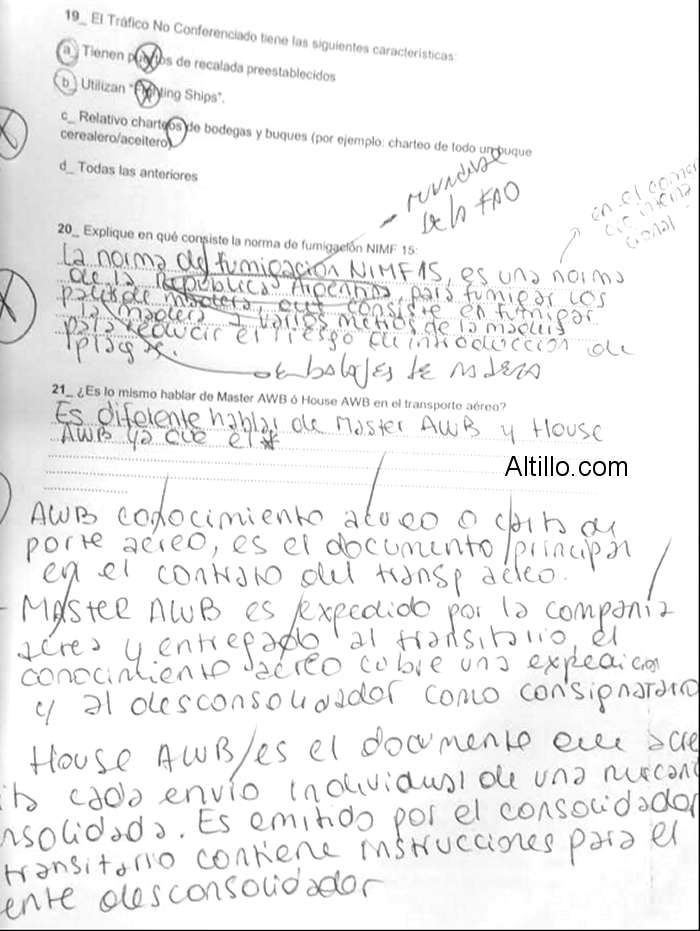 19_ El Tráfico No Conferenciado tiene las siguientes características:
a_ Tienen puertos de recalada preestablecidos
b_ Utilizan "Fighting Ships".
c_ Relativo charteos de bodegas y buques (por ejemplo: charteo de todo un buque
cerealero/aceitero)
d_ Todas las anteriores
de la FAO
en el comer
cio interna
cional
20_ Explique en qué consiste la norma de fumigación NIMF 15:
La norma de fumigación NIMF15, es una norma
de la República Argentina, para fumigar los
palets de madera que consiste en fumigar
la madera
para reducir el riesgo de introducción de
plagas.
embalajes de madera
21_ ¿Es lo mismo hablar de Master AWB ó House AWB en el transporte aéreo?
Es diferente hablar de Master AWB y House
AWB ya que el *
Altillo.com
AWB conocimiento aereo o carta de
porte aereo, es el documento principal
en el contrato del transp aereo.
- MASTER AWB es expedido por la compania
aerea y entregado al transitario, el
conocimiento aereo cubre una expedicion
y al desconsolidador como consignatario
House AWB es el documento que acre
ita cada envio individual de una mercan
nsolidada. Es emitido por el consolidador
transitario contiene instrucciones para el
ente desconsolidador